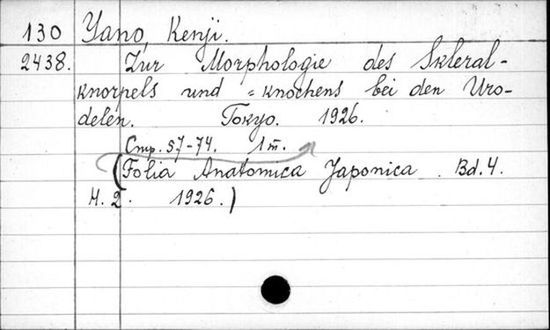 130 Yano, Kenji.
2438. Zur Morphologie des Skleral-
knorpels und =knochens bei den Uro-
delen. Tokyo. 1926.
Стр. 57-74. 1 т.
(Folia Anatomica Japonica. Bd. 4.
H. 2. 1926.)